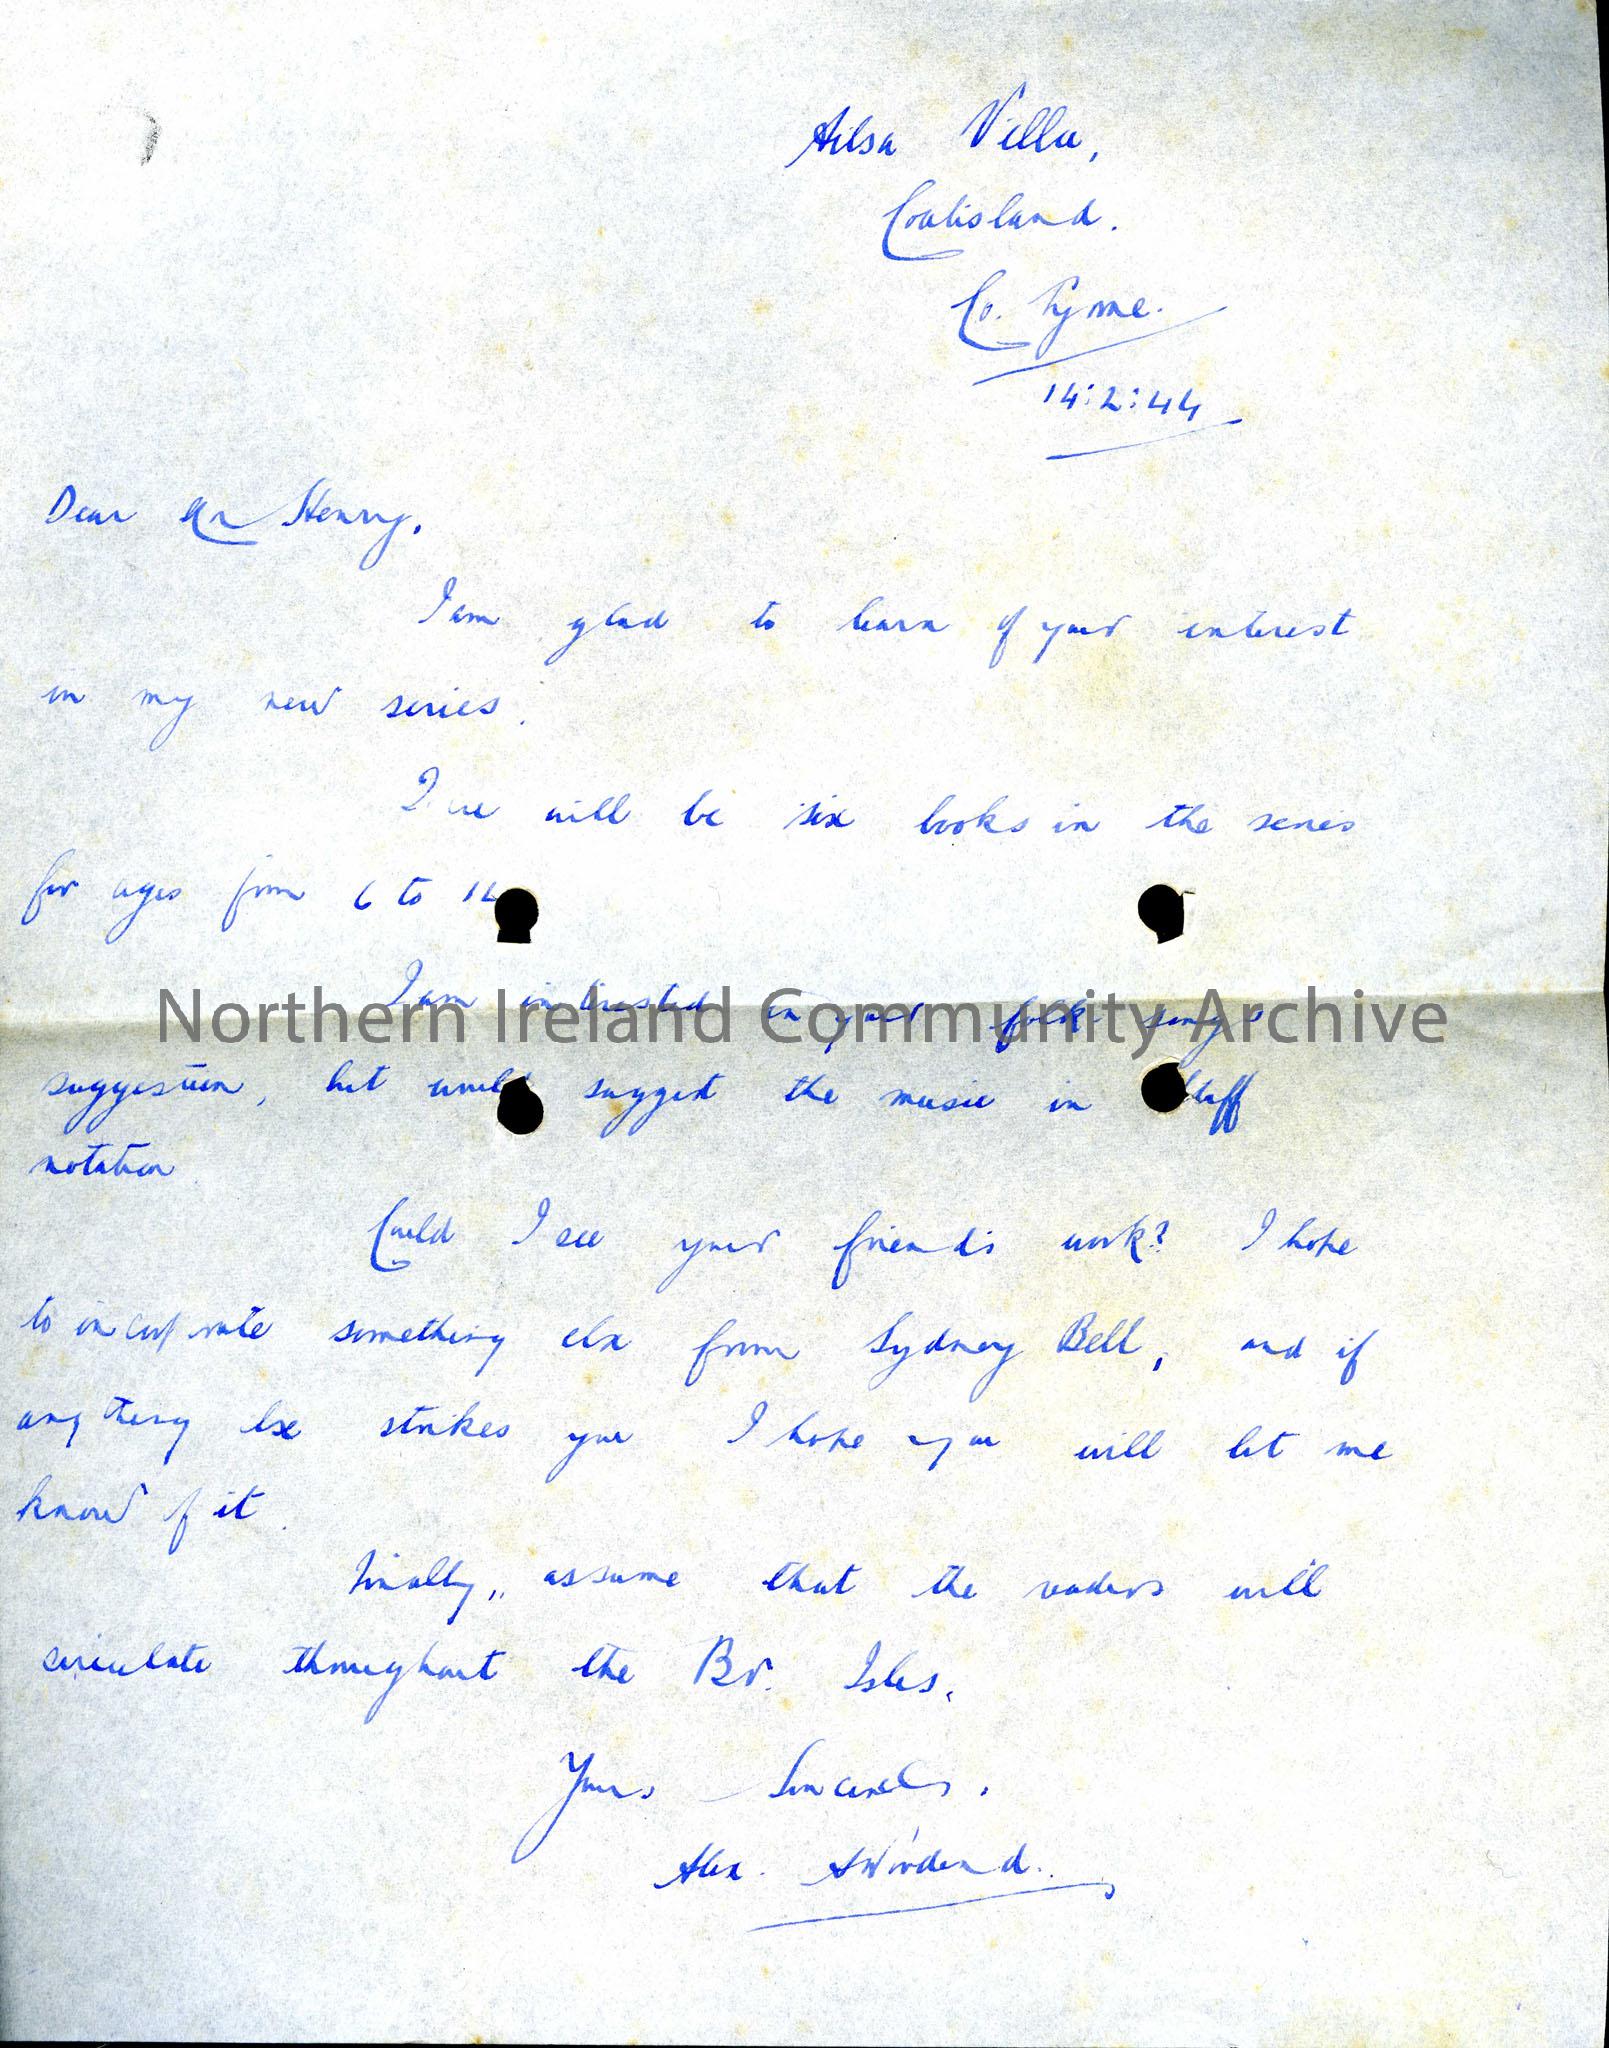 Ailsa Villa,
Coalisland.
Co. Tyrone.
14:2:44
Dear Mr Henry,
I am glad to learn of your interest
in my new series.
There will be six books in the series
for ages from 6 to 14
Northern Ireland Community Archive
I am interested in your folk songs
suggestion, but would suggest the music in staff
notation.
Could I see your friend's work? I hope
to incorporate something else from Sydney Bell, and if
anything else strikes you I hope you will let me
know of it.
Finally, assume that the readers will
circulate throughout the Br. Isles.
Yours Sincerely,
Alex.